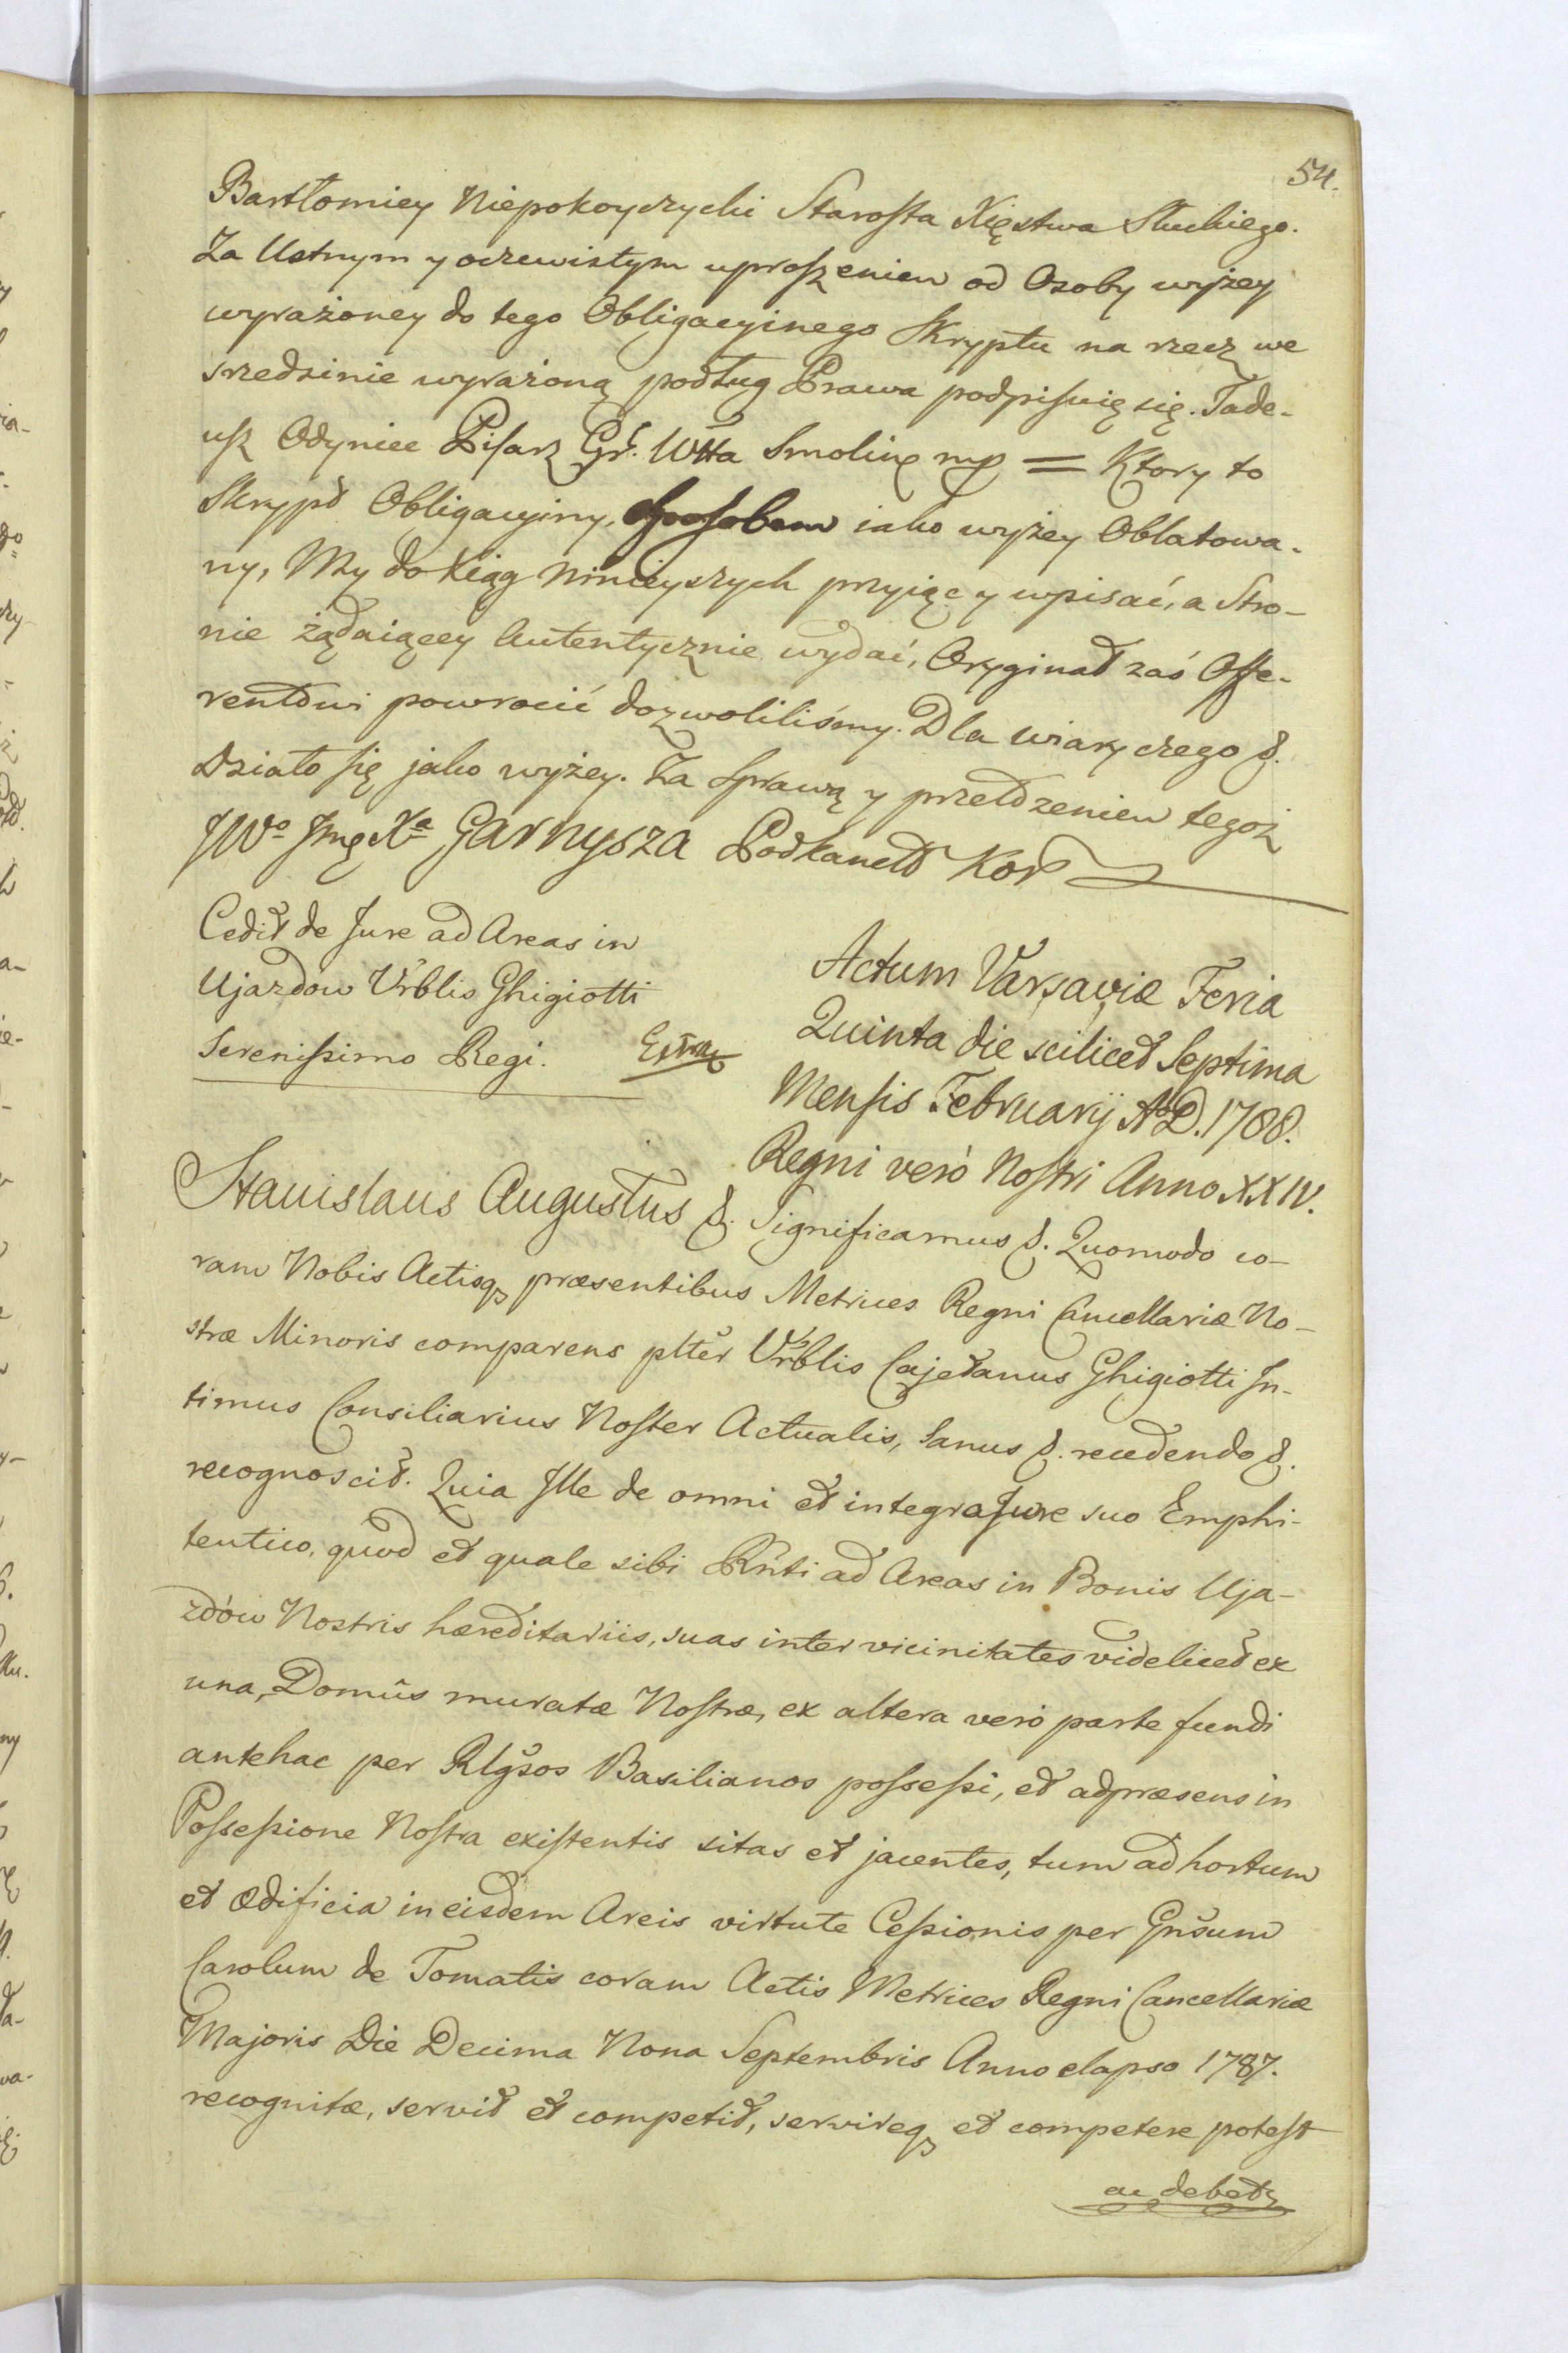 54.
Bartłomiey Niepokoyczycki Starosta Xięstwa Słuckiego.
Za Ustnym y oczewistym uproszeniem od Osoby wyżey
wyrażoney do tego Obligacyinego Skryptu na rzecz we
srzedzinie wyrażoną podług Prawa podpisuię się. Tade-
usz Odyniec Pisarz Gr. Wtta Smoling mp = Ktory to
Skrypt Obligacyiny, Sposobem iako wyżey Oblatowa-
ny, My do Xiąg Ninieyszych przyiąc y wpisać, a Stro-
nie żądaiącey Autentycznie wydać, Oryginał zaś Offe-
rentowi powrocić dozwoliliśmy. Dla wiary czego &.
Działo się jako wyżey. Za Sprawą y przełożeniem tegoż
JWo Jmg Xa Garnysza Podkancl Kor
Cedit de Jure ad Areas in
Ujazdow Urblis Ghigiotti
Serenissimo Regi. Extra
Actum Varsaviæ Feria
Quinta die scilicet Septima
Mensis Februarij Ao D. 1788.
Regni verò Nostri Anno XXIV.
Stanislaus Augustus &. Significamus &. Quomodo co-
ram Nobis Actisq præsentibus Metrices Regni Cancellariæ No-
stræ Minoris comparens plter Urblis Cajetanus Ghigiotti In-
timus Consiliarius Noster Actualis, Sanus &. recedendo &.
recognoscit. Quia Ille de omni et integro Jure suo Emphi-
tentico, quod et quale sibi Rnti ad Areas in Bonis Uja-
zdów Nostris hæreditariis, suas inter vicinitates videlicet ex
una, Domûs muratæ Nostræ, ex altera verò parte fundi
antehac per Rlgsos Basilianos possessi, et adpræsens in
Possessione Nostra existentis sitas et jacentes, tum ad hortum
et ædificia in eisdem Areis virtute Cessionis per Gnsum
Carolum de Tomatis coram Actis Metrices Regni Cancellariæ
Majoris Die Decima Nona Septembris Anno elapso 1787.
recognitæ, servit et competit, servireq et competere potest
ac debet,